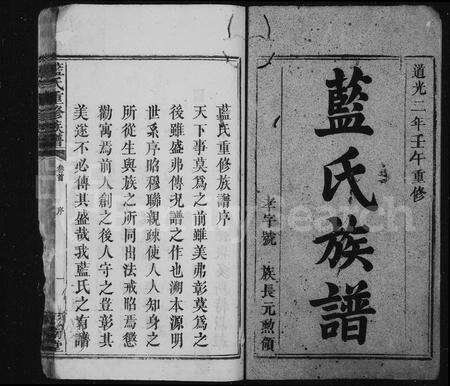 道光二年壬午重修
藍氏族譜
字號 族長元勲領
藍氏重修族譜序
天下事莫爲之前雖美弗彰莫爲之
後雖盛弗傳况譜之作也溯本源明
世系序昭穆聯親疎使人人知身之
所從生與族之所同出法戒昭焉懲
勸寓焉前人創之後人守之豈彰其
美遂不必傳其盛哉我藍氏之有譜
藍氏重修族譜
卷首
序
一
堂